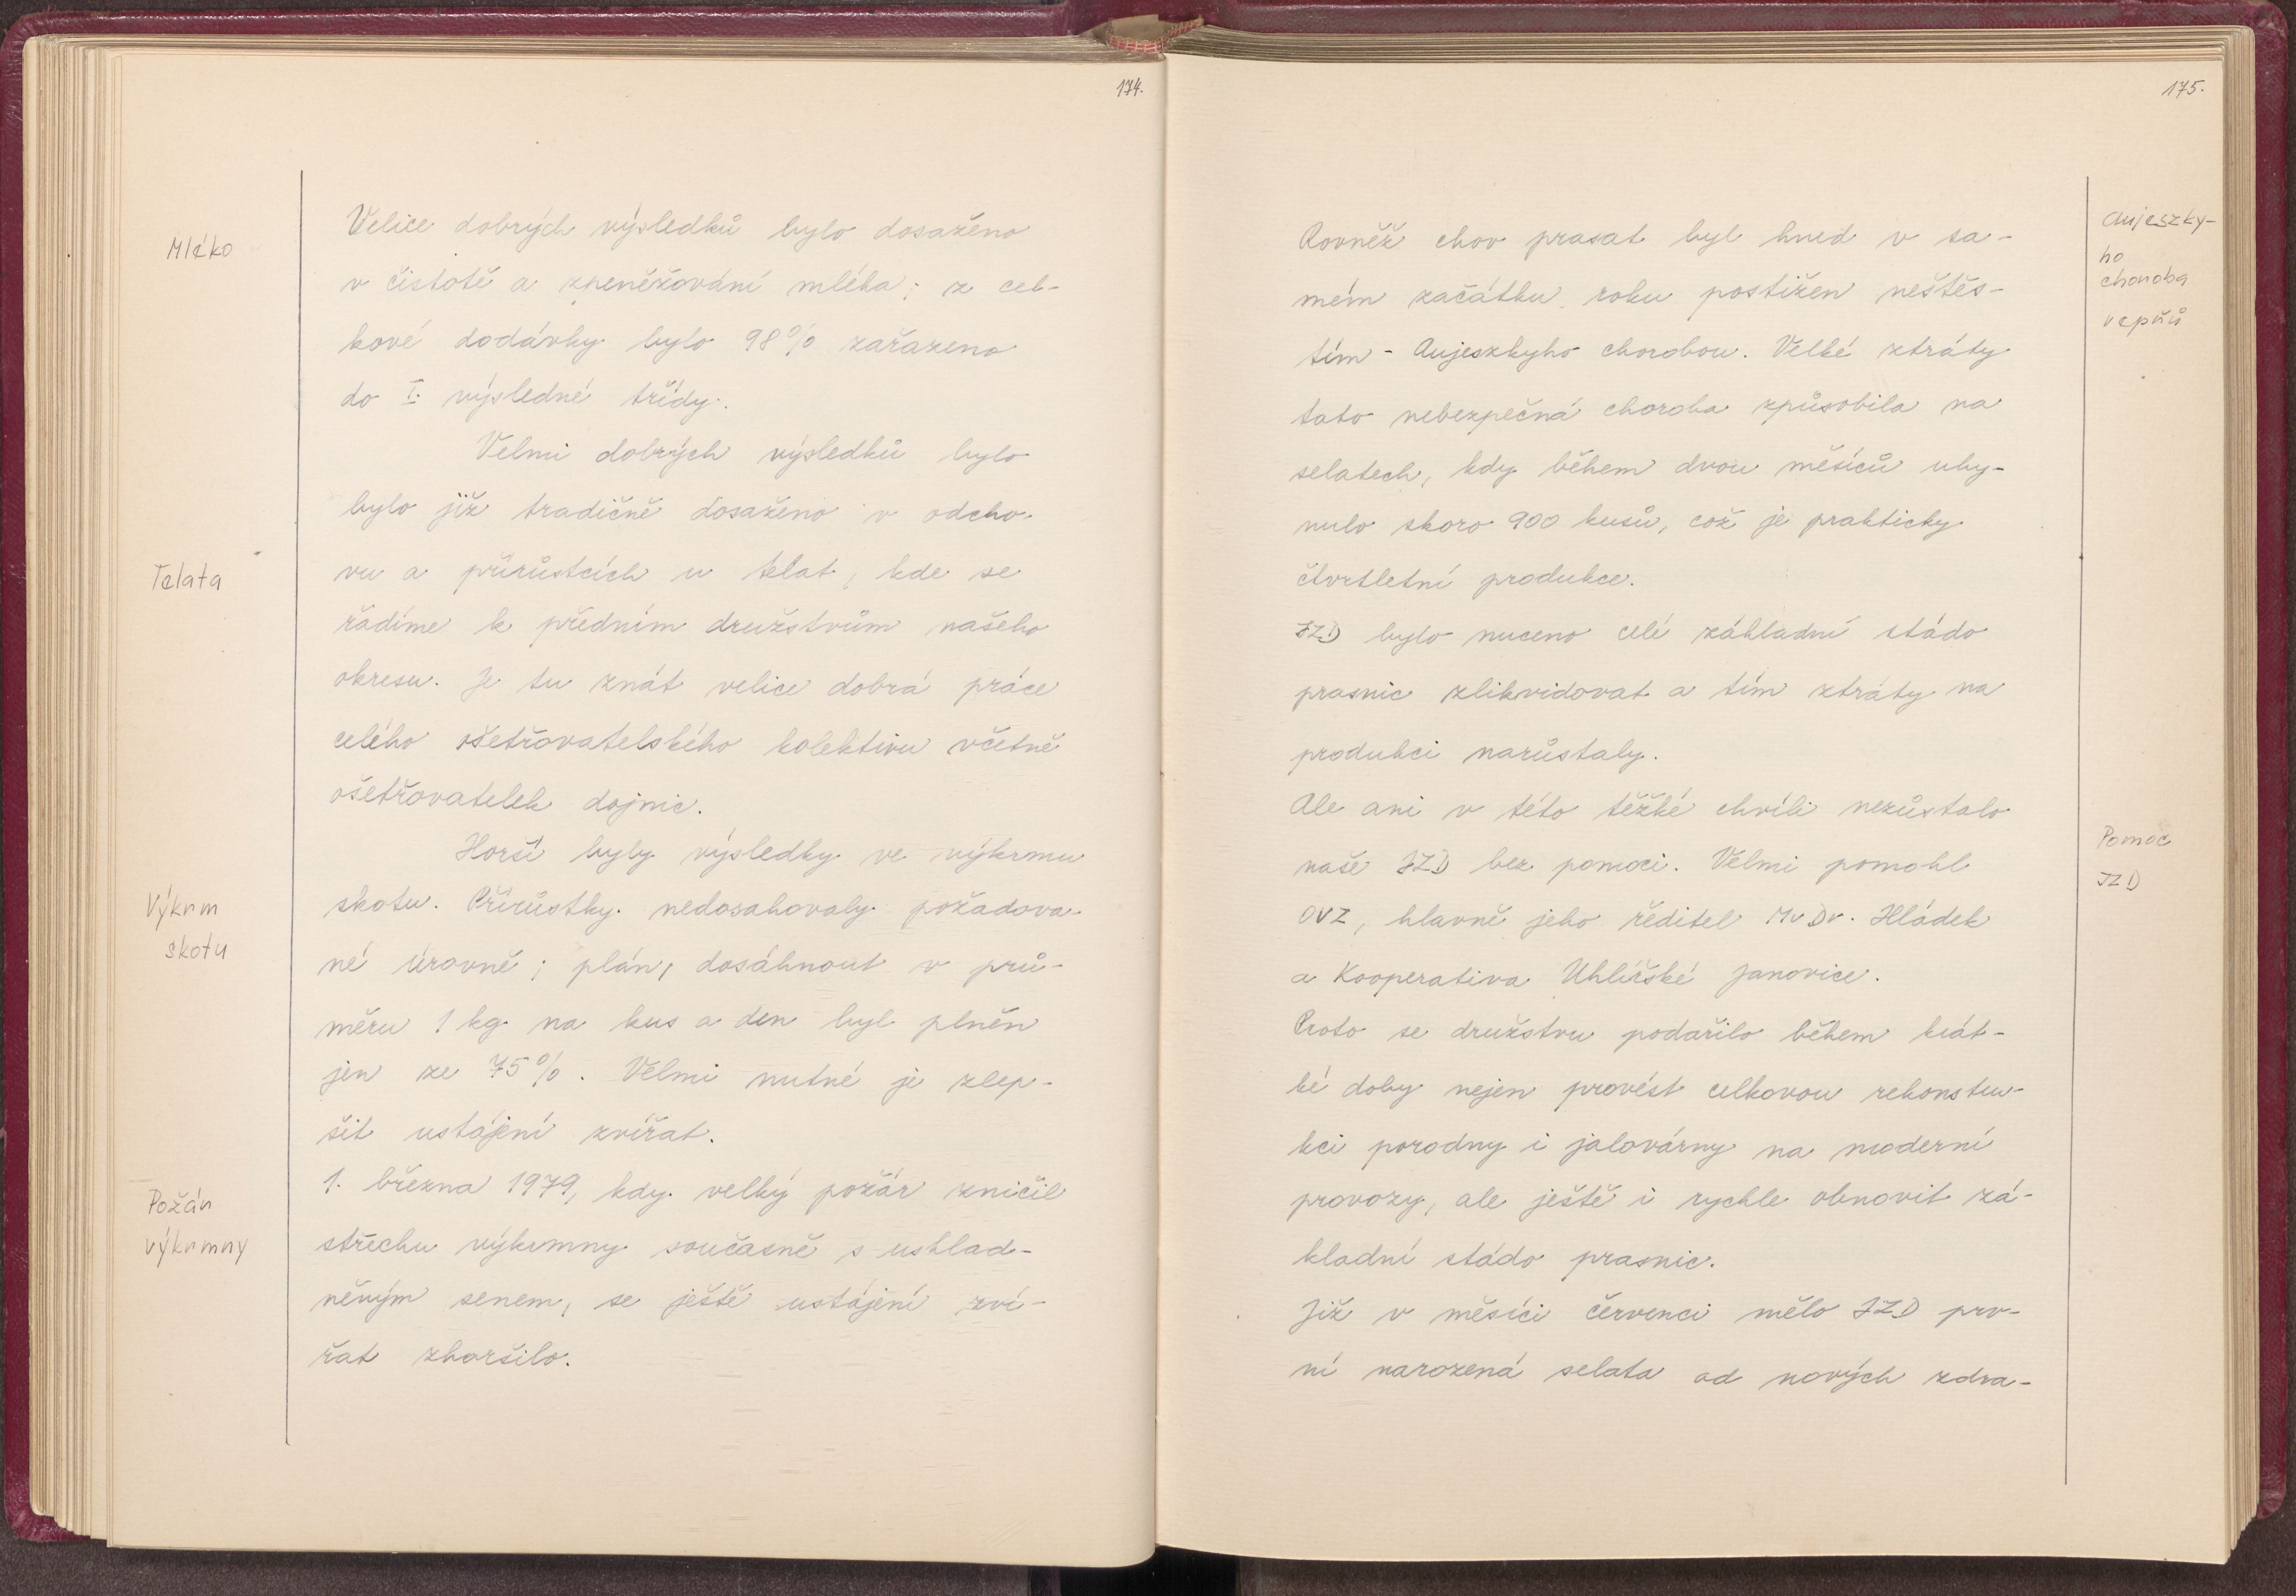 174.
Mléko
Velice dobrých výsledků bylo dosaženo
v čistotě a zpeněžování mléka; z cel-
kové dodávky bylo 98% zařazeno
do I. výsledné třídy.
Velmi dobrých výsledků bylo
bylo již tradičně dosaženo v odcho-
Telata
vu a přírůstcích u telat, kde se
řadíme k předním družstvům našeho
okresu. Je tu znát velice dobrá práce
celého ošetřovatelského kolektivu včetně
ošetřovatelek dojnic.
Horší byly výsledky ve výkrmu
Výkrm
skotu
skotu. Přírůstky nedosahovaly požadova-
né úrovně; plán, dosáhnout v prů-
měru 1 kg na kus a den byl plněn
jen ze 75%. Velmi nutné je zlep-
šit ustájení zvířat.
Požár
výkrmny
1. března 1979, kdy velký požár zničil
střechu výkrmny současně s usklad-
něným senem, se ještě ustájení zví-
řat zhoršilo.
175.
Aujeszky-
ho
choroba
vepřů
Rovněž chov prasat byl hned v sa-
mém začátku roku postižen neštěs-
tím - Aujeszkyho chorobou. Velké ztráty
tato nebezpečná choroba způsobila na
selatech, kdy během dvou měsíců uhy-
nulo skoro 900 kusů, což je prakticky
čtvrtletní produkce.
JZD bylo nuceno celé základní stádo
prasnic zlikvidovat a tím ztráty na
produkci narůstaly.
Ale ani v této těžké chvíli nezůstalo
Pomoc
JZD
naše JZD bez pomoci. Velmi pomohl
OVZ, hlavně jeho ředitel MvDr. Hládek
a Kooperativa Uhlířské Janovice.
Proto se družstvu podařilo během krát-
ké doby nejen provést celkovou rekonstru-
kci porodny i jalovárny na moderní
provozy, ale ještě i rychle obnovit zá-
kladní stádo prasnic.
Již v měsíci červenci mělo JZD prv-
ní narozená selata od nových zdra-